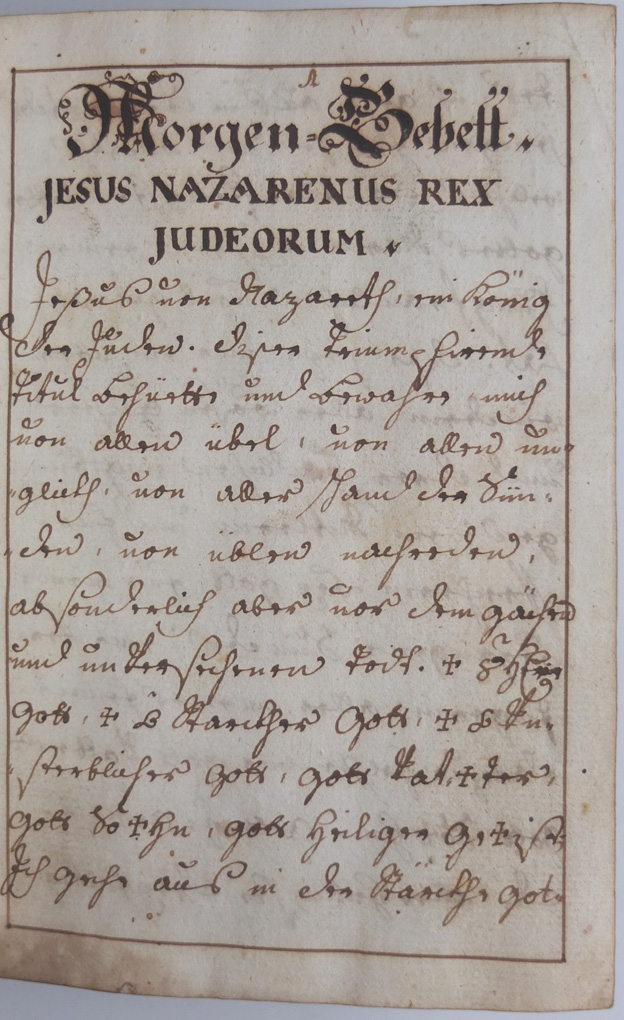 Morgen=Gebett.
JESUS NAZARENUS REX
JUDEORUM.
Jeßus von Nazareth, ein König
der Juden. diser Triumphirende
Titul behüette und bewahre mich
von allen übel, von allen un-
-glickh, von aller schand der Sün-
-den, von üblen nachreden,
absonderlich aber vor dem gächen
und unversechenen todt. ✝ ô Herr
gott, ✝ ô Starckher Gott, ✝ ô Un-
-sterblicher gott, gott Vat✝ter,
gott So✝hn, gott Heiliger Ge✝ist
Ich gehe aus in der Stärckhe got-